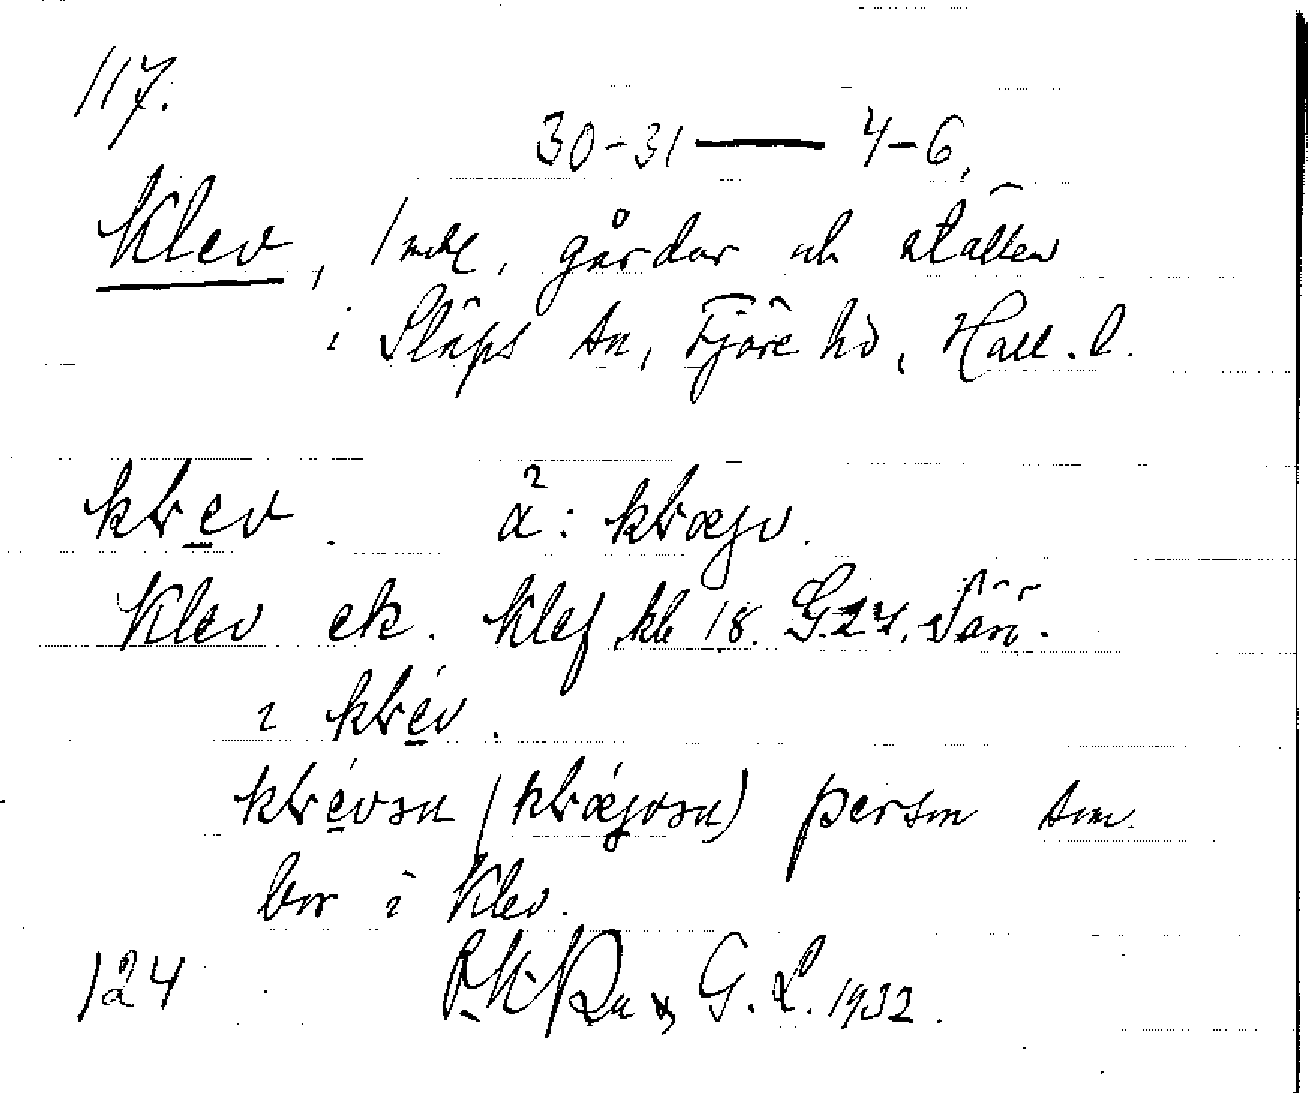 117.
30-31 — 4-6.
Klev, 1 mtl, gårdar och ställen
i Släps sn, Fjäre hd, Hall. l.
klev. ä: klægv.
Klev ek. Klef kb 18. G.27. Särö.
i klév.
klévsn (klǽgvsn) person som
bor i Klev.
124 G. L. 1932.